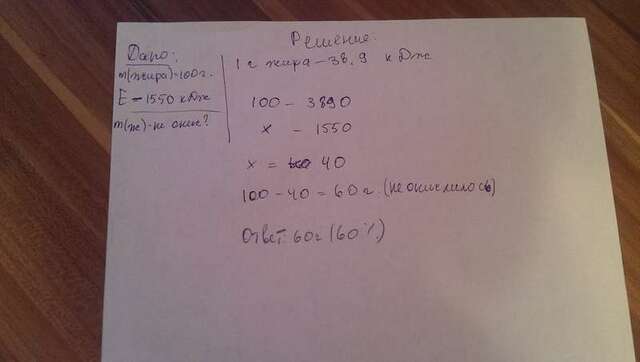 Решение.
Дано:
m(жира)-100г.
E - 1550 кДж
m(ж)-не окис?
1 г жира - 38,9 кДж
100 - 3890
x - 1550
x = 40
100 - 40 = 60 г. (не окислилось)
Ответ: 60г (60%)